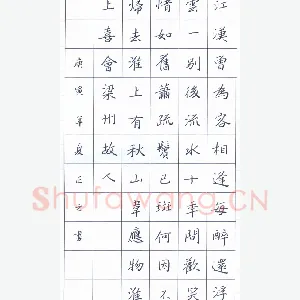 江漢曾為客相逢每醉還浮
雲一別後流水十年間歡笑
情如舊蕭疏鬢已斑何因不
歸去淮上有秋山韋應物淮
上喜會梁州故人
庚寅年夏正書
Shufawang.CN